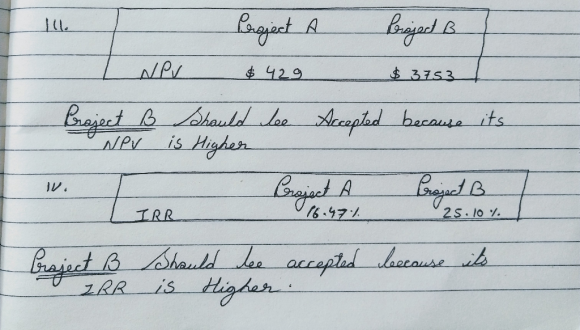 III.
Project A Project B
NPV $ 429 $ 3753
Project B Should be Accepted because its
NPV is Higher
IV.
Project A Project B
IRR 16.47% 25.10%
Project B Should be accepted because its
IRR is Higher.